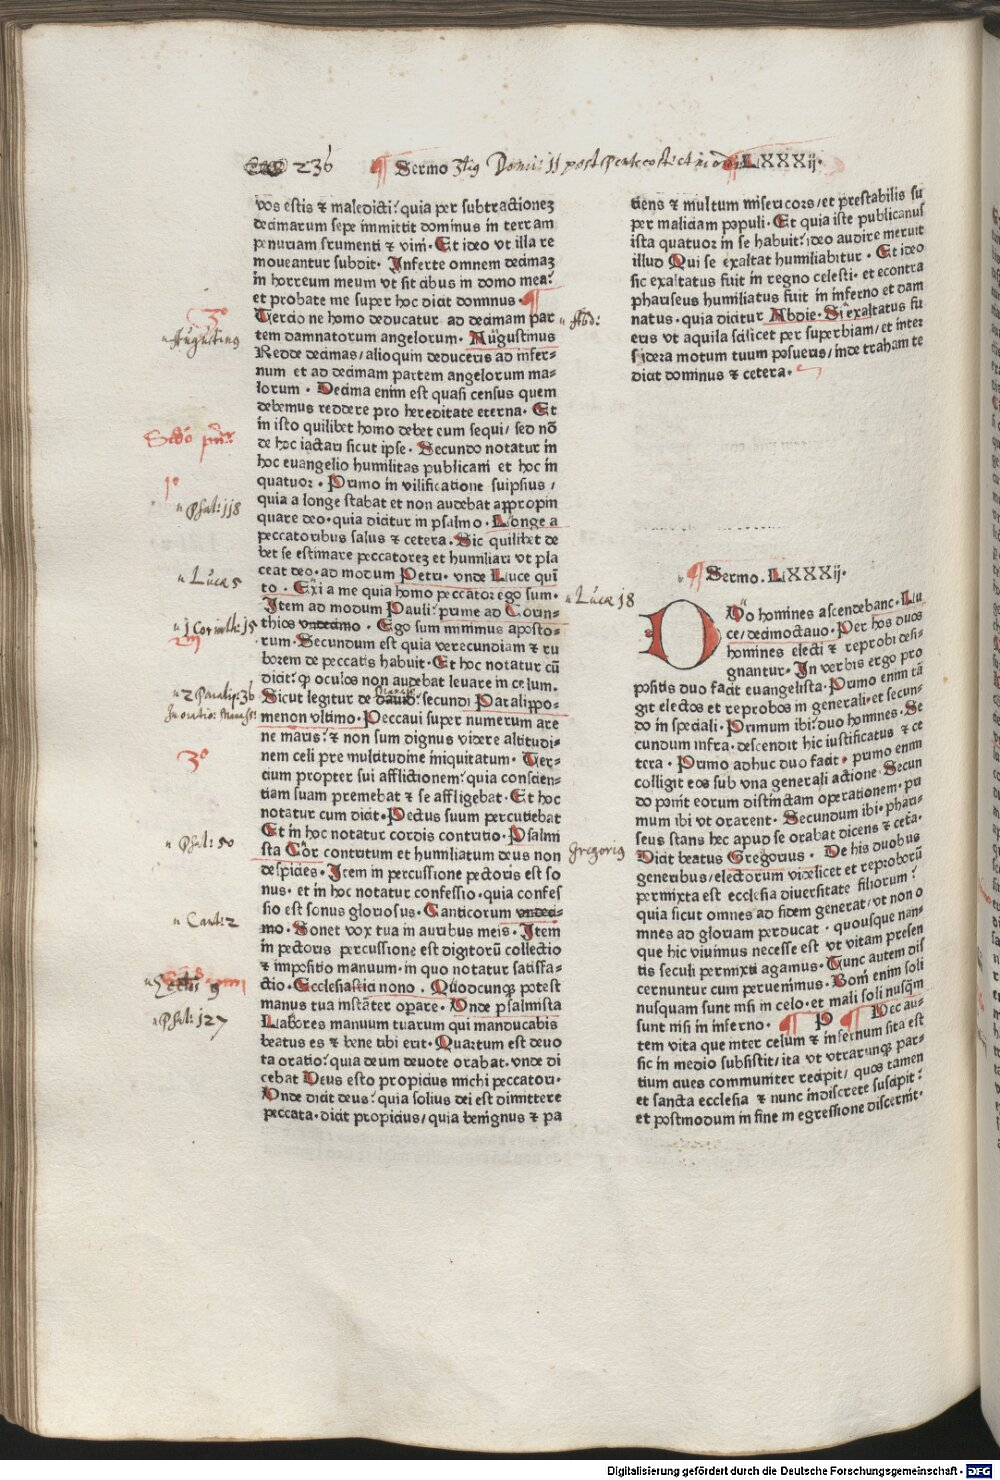 236 Sermo 3tiꝰ Domi: 11 post Pentecost: et in ordi LXXXij.
vos estis ⁊ maledicti? quia per subtractionez
decimarum sepe inmittit dominus in terram
penuriam frumenti ⁊ vini. Et ideo vt illa re
moueantur subdit. Inferte omnem decimaz
in horreum meum vt sit cibus in domo mea?
et probate me super hoc dicit dominus. ¶
Tercio ne homo deducatur ad decimam par
tem damnatorum angelorum. Augustinus
Redde decimas/alioquin deduceris ad infer⸗
num et ad decimam partem angelorum ma⸗
lorum. Decima enim est quasi census quem
debemus reddere pro hereditate eterna. Et
in isto quilibet homo debet eum sequi/sed nō
de hoc iactari sicut ipse. Secundo notatur in
hoc euangelio humilitas publicani et hoc in
quatuor. Primo in vilificatione suipsius/
quia a longe stabat et non audebat appropin
quare deo.quia dicitur in psalmo. Longe a
peccatoribus salus ⁊ cetera. Sic quilibet de
bet se estimare peccatorez et humiliari vt pla
ceat deo.ad modum Petri. vnde Luce quin
to. Exi a me quia homo peccator ego sum.
Item ad modum Pauli? prime ad Corin⸗
thios vndecimo. Ego sum minimus aposto⸗
rum. Secundum est quia verecundiam ⁊ ru
borem de peccatis habuit. Et hoc notatur cū
dicit? ꝙ oculos non audebat leuare in celum.
Sicut legitur de dauid? secundi Paralippo⸗
menon vltimo. Peccaui super numerum are
ne maris? ⁊ non sum dignus videre altitudi⸗
nem celi pre multitudine iniquitatum. Ter⸗
cium propter sui afflictionem? quia conscien⸗
tiam suam premebat ⁊ se affligebat. Et hoc
notatur cum dicit. Pectus suum percutiebat
Et in hoc notatur cordis contritio. Psalmi
sta Cor contritum et humiliatum deus non
despicies. Item in percussione pectoris est so
nus. et in hoc notatur confessio. quia confes
sio est sonus gloriosus. Canticorum vndeci⸗
mo. Sonet vox tua in auribus meis. Item
in pectoris percussione est digitorū collectio
⁊ impositio manuum. in quo notatur satisfa⸗
ctio. Ecclesiastici nono. Quodcunqꝫ potest
manus tua instāter opare. Vnde psalmista
Labores manuum tuarum qui manducabis
beatus es ⁊ bene tibi erit. Quartum est deuo
ta oratio? quia deum deuote orabat. vnde di
cebat Deus esto propicius michi peccatori.
Vnde dicit deus? quia solius dei est dimittere
peccata. dicit propicius/quia benignus ⁊ pa
3º
Augusting
Scdo prin:
1º
Psal: 118
Luca 5
1 Corinth: 15
2 Paralip: 36
In oratio: Manass:
3º
Psal: 50
Cant: 2
9
Psal: 127
tiens ⁊ multum misericors/et prestabilis su
per maliciam populi. Et quia iste publicanus
ista quatuor in se habuit? ideo audire meruit
illud Qui se exaltat humiliabitur. Et ideo
sic exaltatus fuit in regno celesti. et econtra
phariseus humiliatus fuit in inferno et dam
natus. quia dicitur Abdie. Si exaltatus fu
eris vt aquila scilicet per superbiam/et inter
sidera motum tuum posueris/inde traham te
dicit dominus ⁊ cetera.
Abd:
¶ Sermo. LXXXij.
Luca 18
DVo homines ascendebant. Lu
ce/decimoctauo. Per hos duos
homines electi ⁊ reprobi desi⸗
gnantur. In verbis ergo pro
positis duo facit euangelista. Primo enim tā
git electos et reprobos in generali.et secun⸗
do in speciali. Primum ibi? duo homines. Se
cundum infra. descendit hic iustificatus ⁊ ce
tera. Primo adhuc duo facit. primo enim
colligit eos sub vna generali actione Secun
do ponit eorum distinctam operationem. pri
mum ibi vt orarent. Secundum ibi. phari⸗
seus stans hec apud se orabat dicens ⁊ ceta.
Dicit beatus Gregorius. De his duobus
generibus/electorum videlicet et reproborū
permixta est ecclesia diuersitate filiorum?
quia sicut omnes ad fidem generat/vt non o
mnes ad gloriam perducat. quousque nan⸗
que hic viuimus necesse est vt vitam presen
tis seculi permixti agamus. Tunc autem dis
cernuntur cum peruenimus. Boni enim soli
nusquam sunt nisi in celo. et mali soli nusqm̄
sunt nisi in inferno. ¶ P ¶ Hec au⸗
tem vita que inter celum ⁊ infernum sita est
sic in medio subsistit/ita vt vtrarunqꝫ par⸗
tium ciues communiter recipit/quos tamen
et sancta ecclesia ⁊ nunc indiscrete suscipit?
et postmodum in fine in egressione discernit.
Gregorig
Digitalisierung gefördert durch die Deutsche Forschungsgemeinschaft - DFG